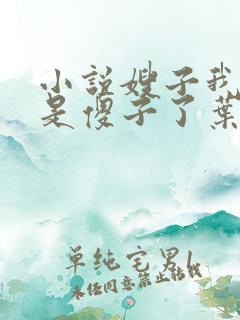 小说嫂子我
是傻子了葉
单纯宅男l
未经同意禁止转载